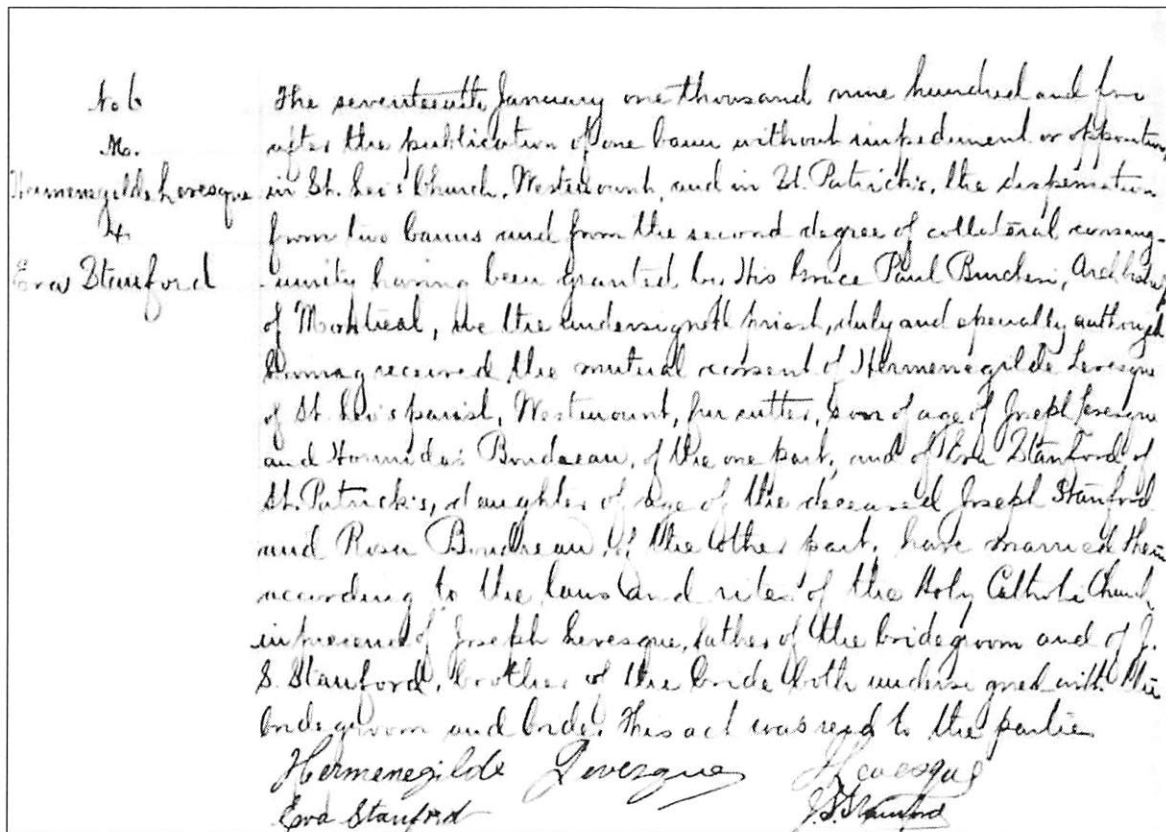 No 6
M.
Hermenegilde Levesque
&
Eva Stanford
The seventeenth January one thousand nine hundred and five
after the publication of one bann without impediment or opposition
in St. Leo's Church, Westmount, and in St. Patrick's, the dispensation
from two banns and from the second degree of collateral consang-
uinity having been granted by His Grace Paul Bruchesi, Archbishop
of Montreal, we the undersigned priest, duly and specially authorized
having received the mutual consent of Hermenegilde Levesque
of St. Leo's parish, Westmount, fur cutter, son of age of Joseph Levesque
and Hormidas Boudreau, of the one part, and of Eva Stanford of
St. Patrick's, daughter of age of the deceased Joseph Stanford
and Rosa Boudreau, of the other part, have married them
according to the laws and rites of the Holy Catholic Church,
in presence of Joseph Levesque, father of the bridegroom and of J.
S. Stanford, brother of the bride both undersigned with the
bridegroom and bride. This act was read to the parties
Hermenegilde Levesque J Levesque
Eva Stanford J. S. Stanford